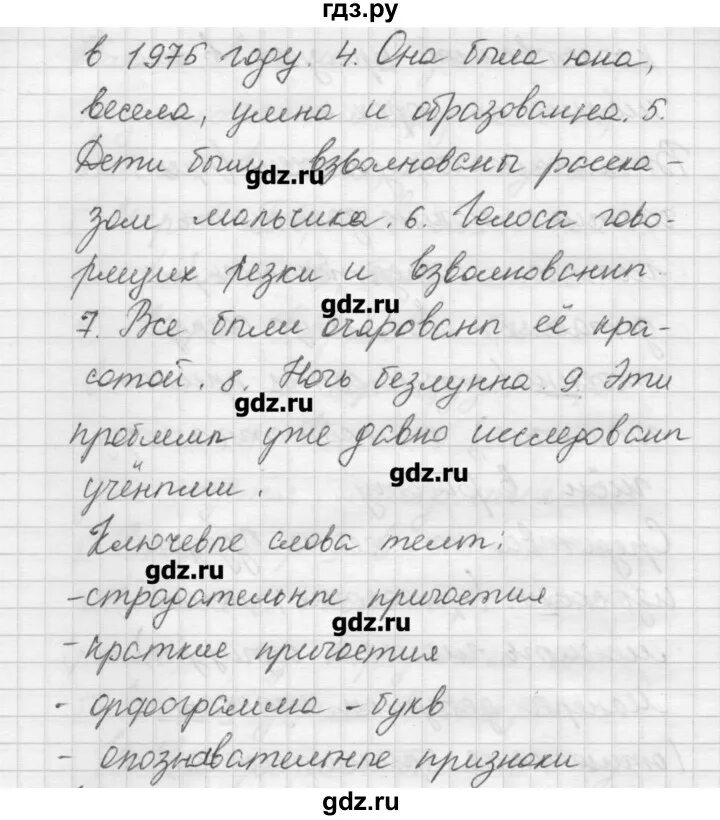 гдз.ру
в 1975 году. 4. Она была юна,
весела, умна и образованна. 5.
Дети были взволнованы расска-
gdz.ru
зом мальчика. 6. Голоса гово-
рящих резки и взволнованны.
gdz.ru
7. Все были очарованы её кра-
сотой. 8. Ночь безлунна. 9. Эти
gdz.ru
проблемы уже давно исследованы
gdz.ru
учёными.
Ключевые слова темы:
gdz.ru
- страдательные причастия
gdz.ru
- краткие причастия
- орфограмма - букв
- опознавательные признаки
gdz.ru